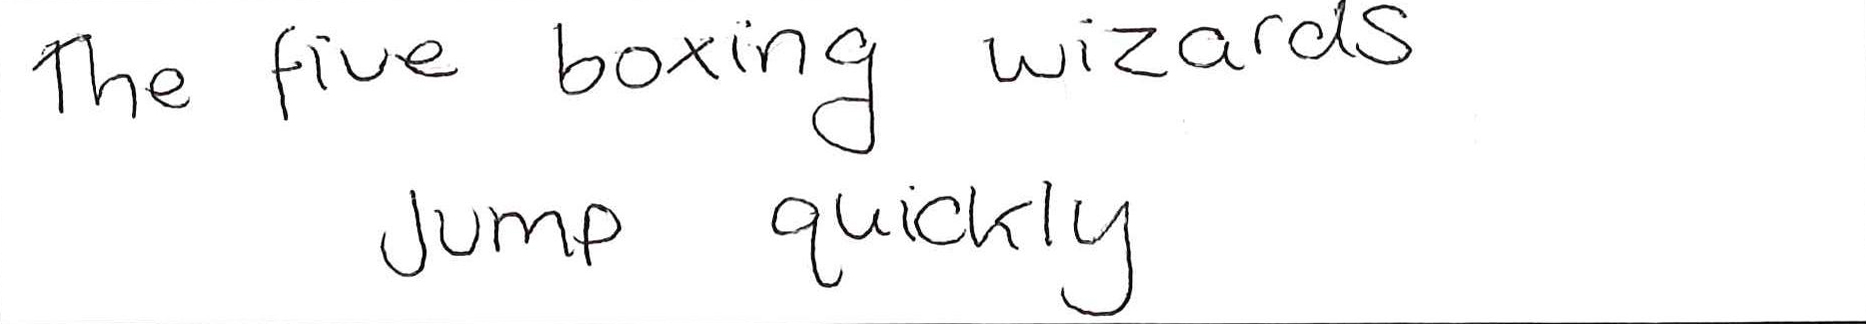 The five boxing wizards
Jump quickly